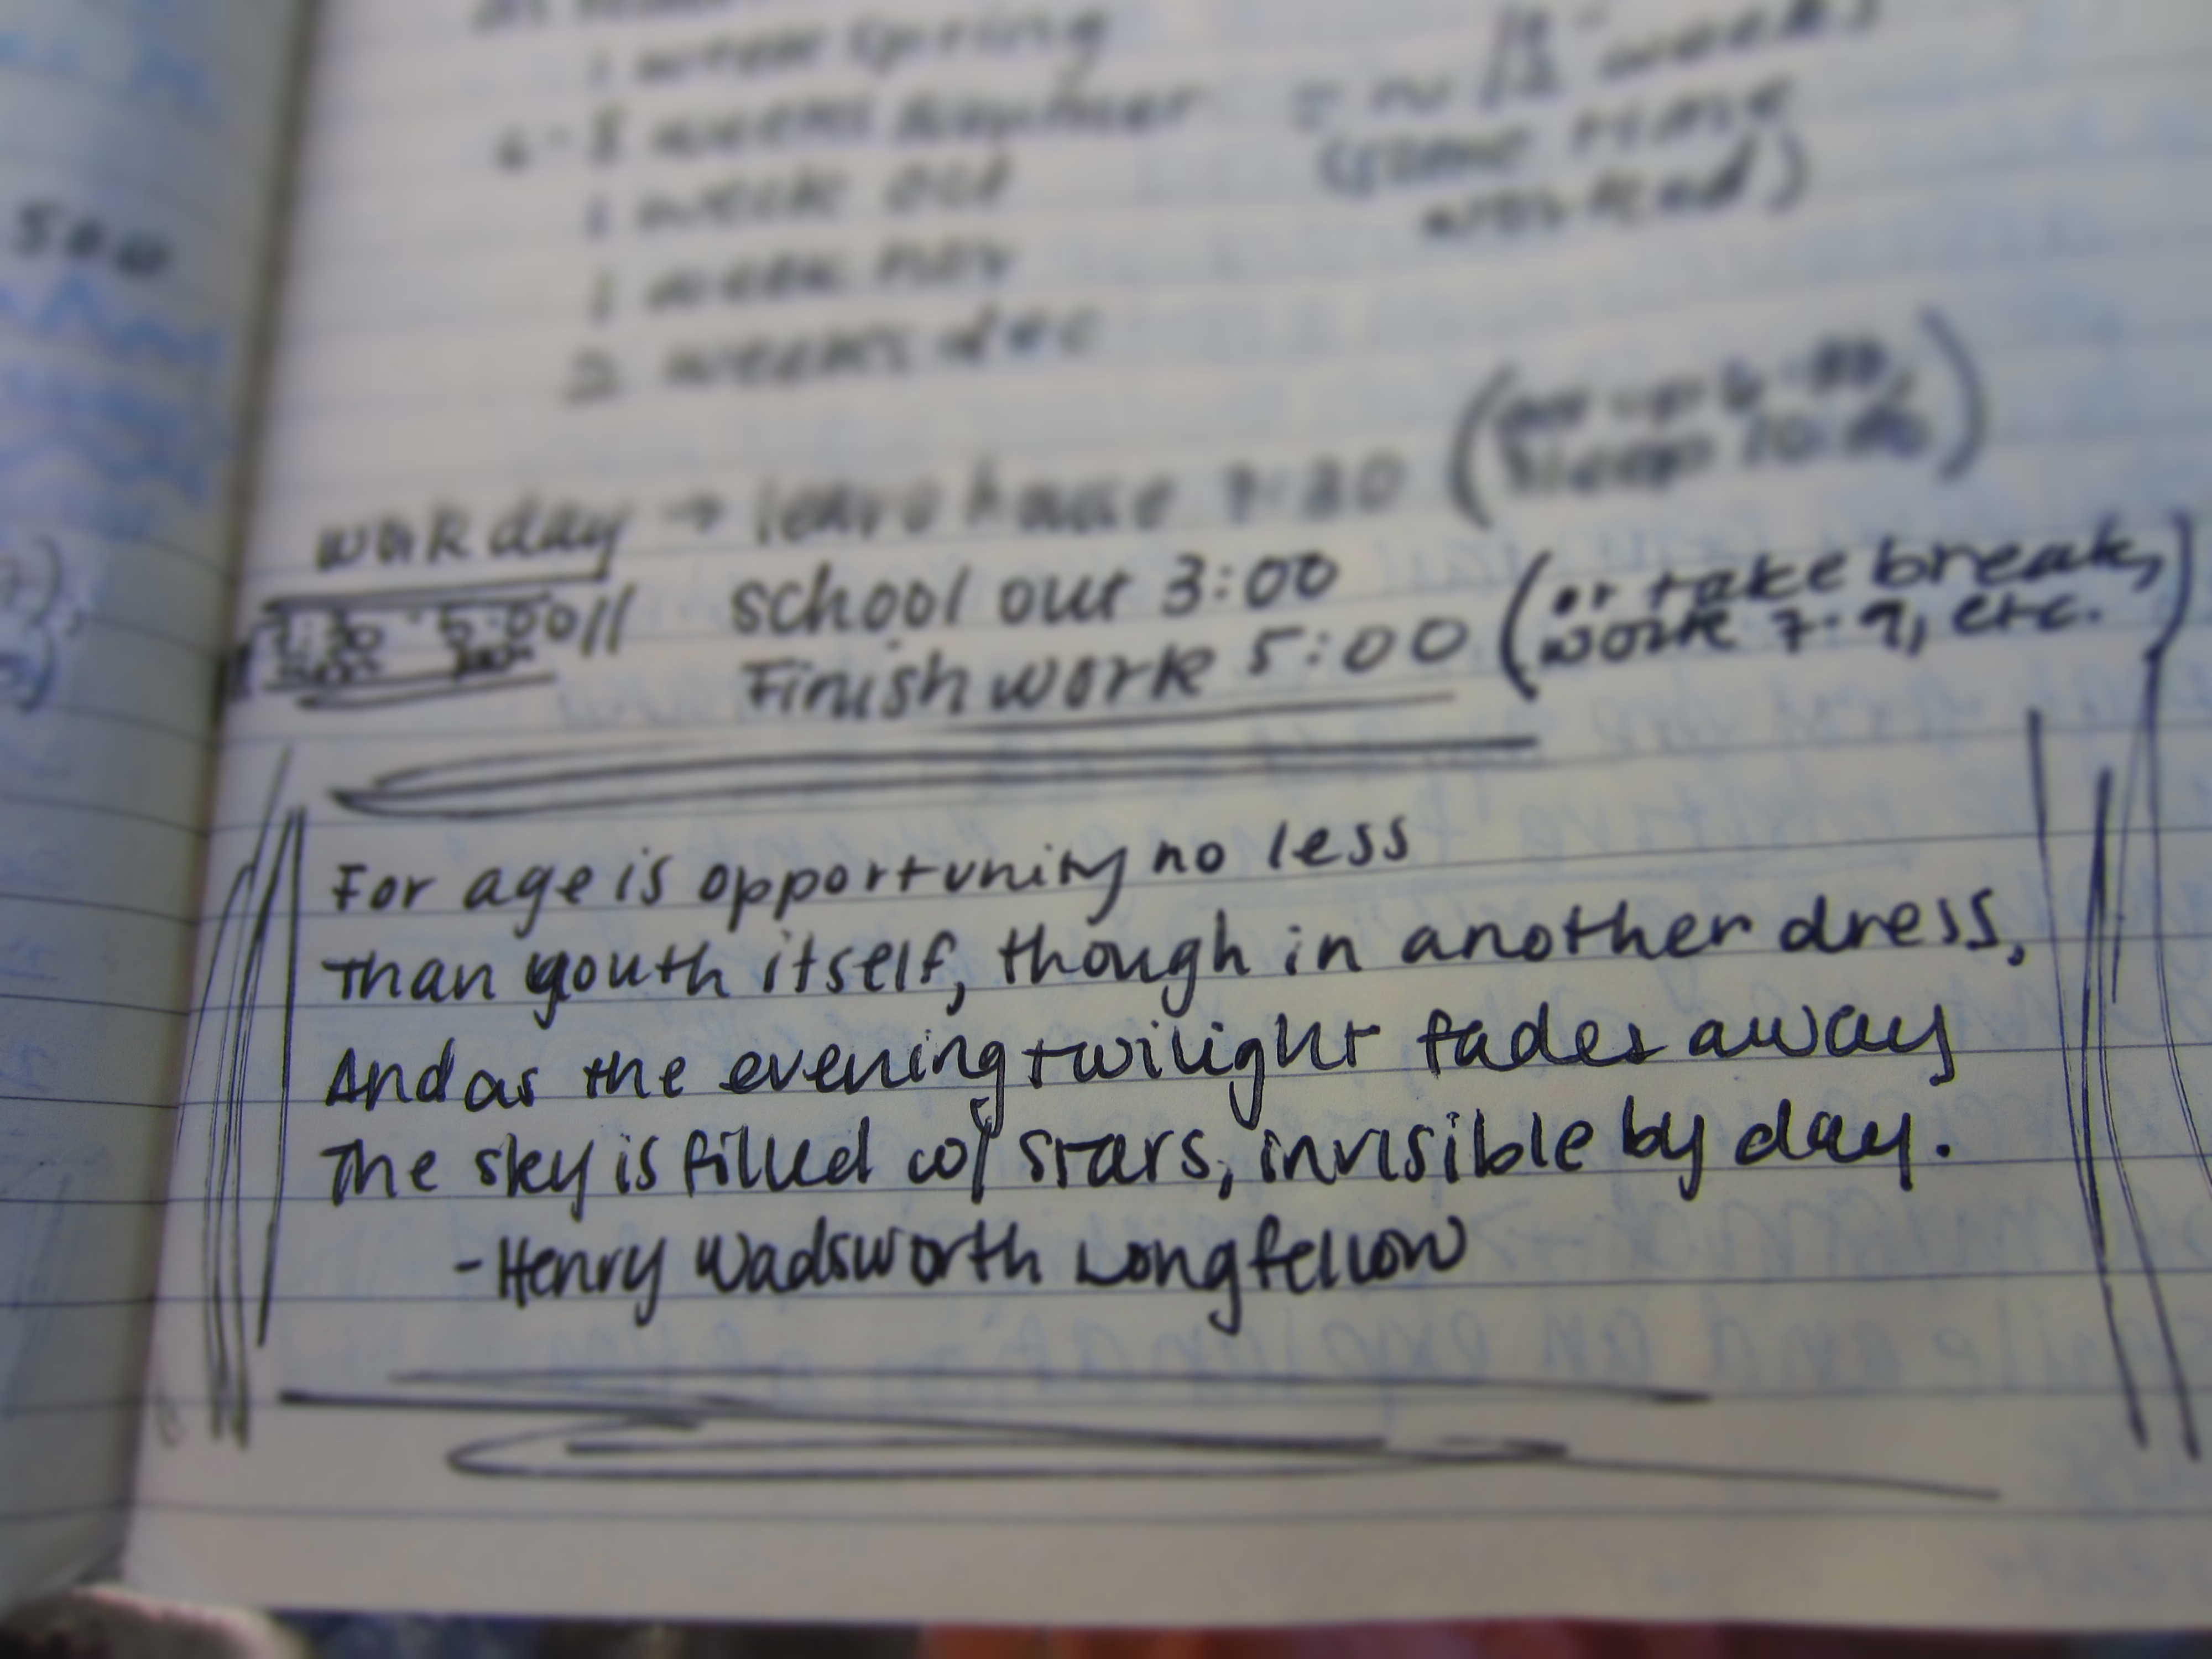 1 week spring
6-8 weeks summer
1 week oct
1 week nov
2 weeks dec
weeks
(some time
worked)
work day → leave house 7:30 (get up 6:00,
sleep 10:00)
7:30 5:00// school out 3:00
Finish work 5:00 (or take break,
work 7-9, etc.
For age is opportunity no less
Than youth itself, though in another dress,
And as the evening twilight fades away
The sky is filled w/ stars, invisible by day.
-Henry Wadsworth Longfellow